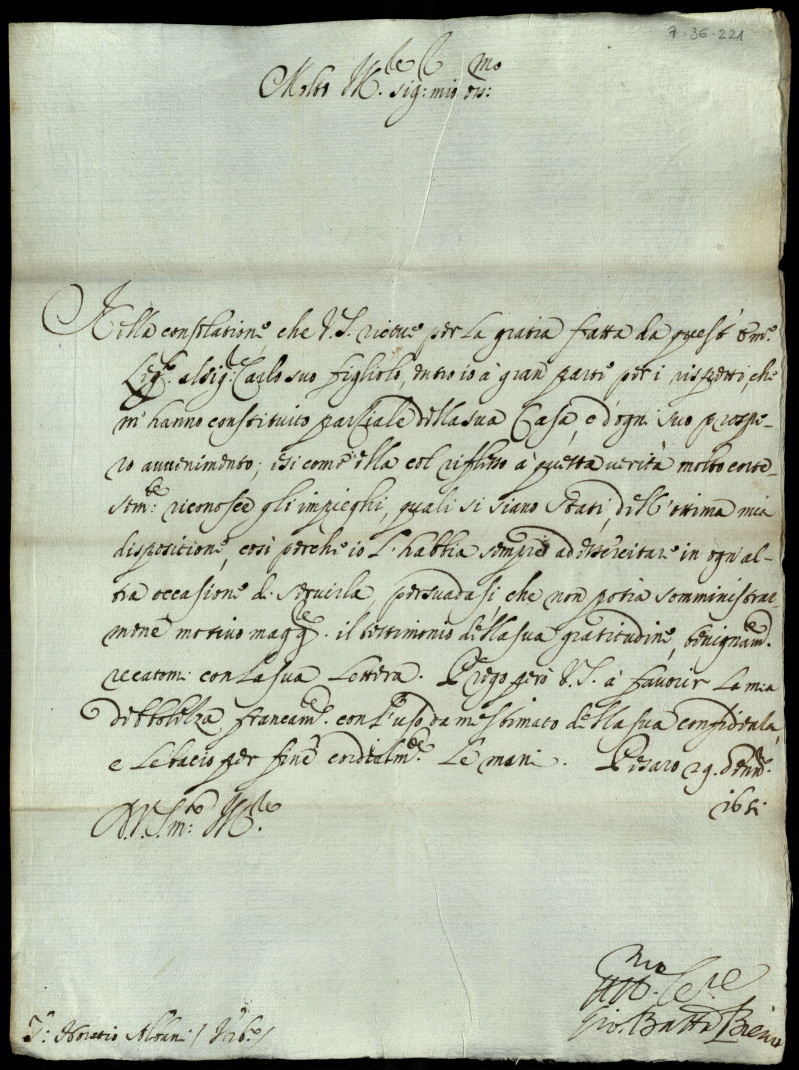 7-36-221
Molto Ill.re sig: mio oss:mo
Nella consolatione che V.S. riceve per la gratia fatta da quest' Em.o
Leg.o al sig.r Carlo suo figliolo, entro io à gran parte per i rispetti, che
m' hanno constituito partiale della sua Casa, e d'ogni suo prospe-
ro avvenimento; e si come ella col riflesso à questa verità molto corte-
sem:te riconosce gli impieghi, quali si siano stati, dell' ottima mia
dispositione, così perche io l' habbia sempre ad essercitare in ogn' al-
tra occasione di servirla persuadasi, che non potria somministrar-
mene motivo magg.re il testimonio della sua gratitudine, benignam.te
recatomi con la sua lettera. Prego però V.S. à favorir la mia
debbolezza francam.te con l' uso da me stimato della sua confidenza,
e le bacio per fine cordialm.te le mani. Pesaro 29.
165
D. V.S. m:to Ill.re
Gio. Batta
S: Horatio Albani / Urb.o /